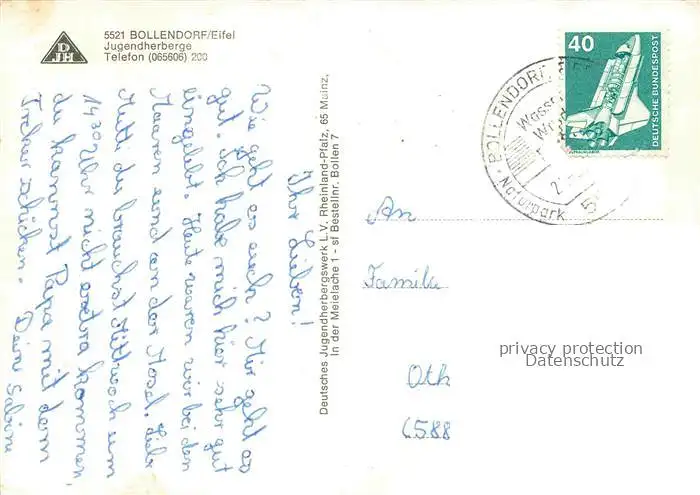 5521 BOLLENDORF/Eifel
Jugendherberge
Telefon (065606) 200
DJH
Ihr Lieben!
Wie geht es euch? Mir geht es
gut. Ich habe mich hier sehr gut
eingelebt. Heute waren wir bei den
Maaren und an der Mosel. Liebe
Mutti du brauchst Mittwoch um
14.30 Uhr nicht extra kommen
du kannst Papa mit dem
Trecker schicken. Deine Sabine
Deutsches Jugendherbergswerk L.V. Rheinland-Pfalz, 65 Mainz,
In der Meielache 1 - sf Bestellnr. Bollen 7
40
DEUTSCHE BUNDESPOST
BOLLENDORF
Naturpark
An
Familie
Oth
6588
privacy protection
Datenschutz